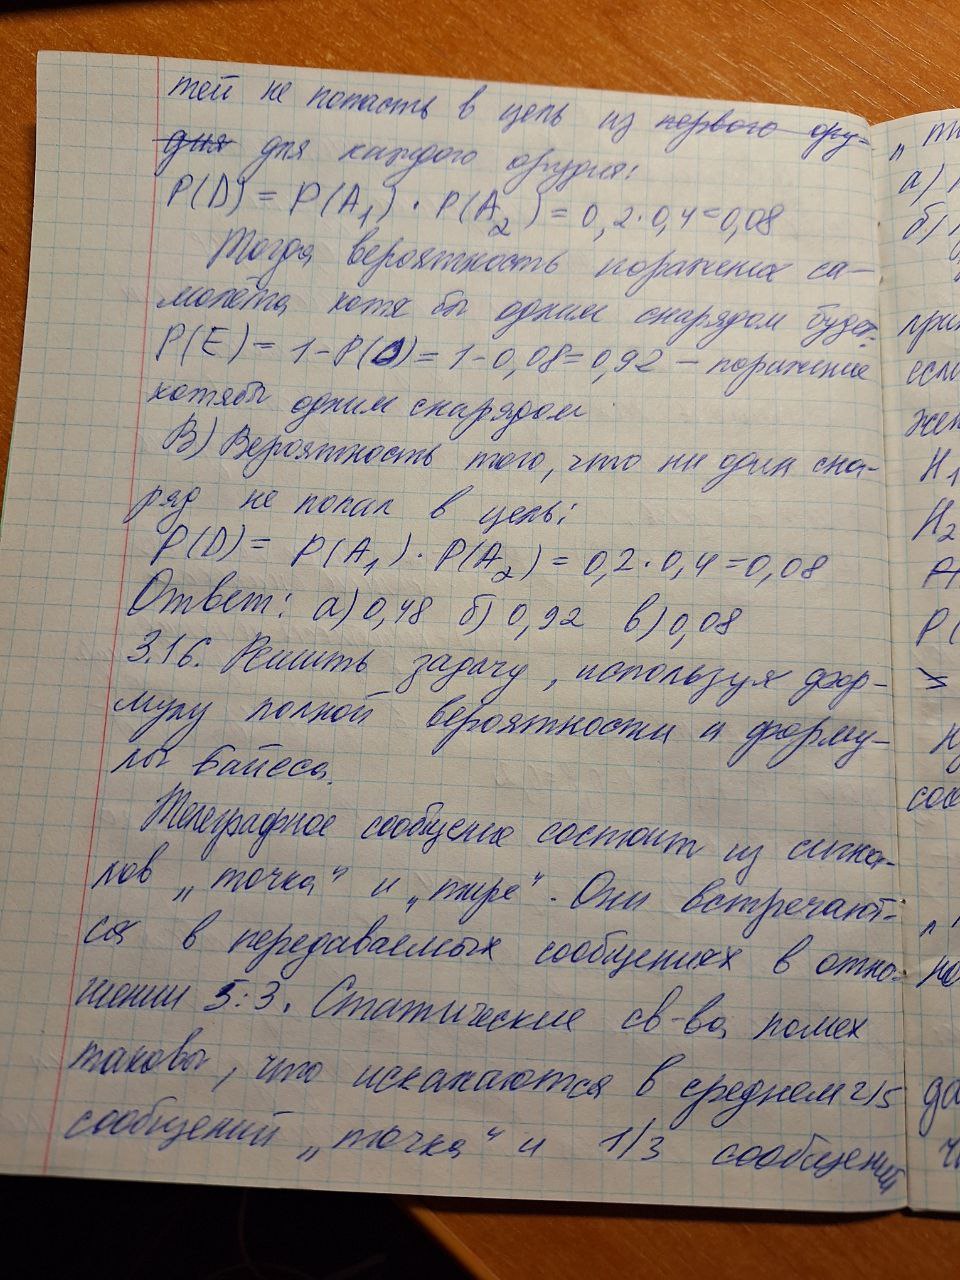 тей не попасть в цель из первого ору-
дия для каждого орудия:
P(D) = P(A₁) · P(A₂) = 0,2·0,4=0,08
Тогда вероятность поражения са-
молета хотя бы одним снарядом будет:
P(E) = 1-P(D)= 1-0,08=0,92 – поражение
хотябы одним снарядом
В) Вероятность того, что ни один сна-
ряд не попал в цель:
P(D) = P(A₁) · P(A₂) = 0,2·0,4=0,08
Ответ: а) 0,48 б) 0,92 в) 0,08
3.16. Решить задачу, используя фор-
мулу полной вероятности и форму-
лы Байеса.
Телеграфное сообщение состоит из сигна-
лов „точка“ и „тире“. Они встречают-
ся в передаваемых сообщениях в отно-
шении 5:3. Статические св-ва помех
таковы, что искажаются в среднем 2/5
сообщений „точка“ и 1/3 сообщений
а)
б)
H₁
H₂
A
P(